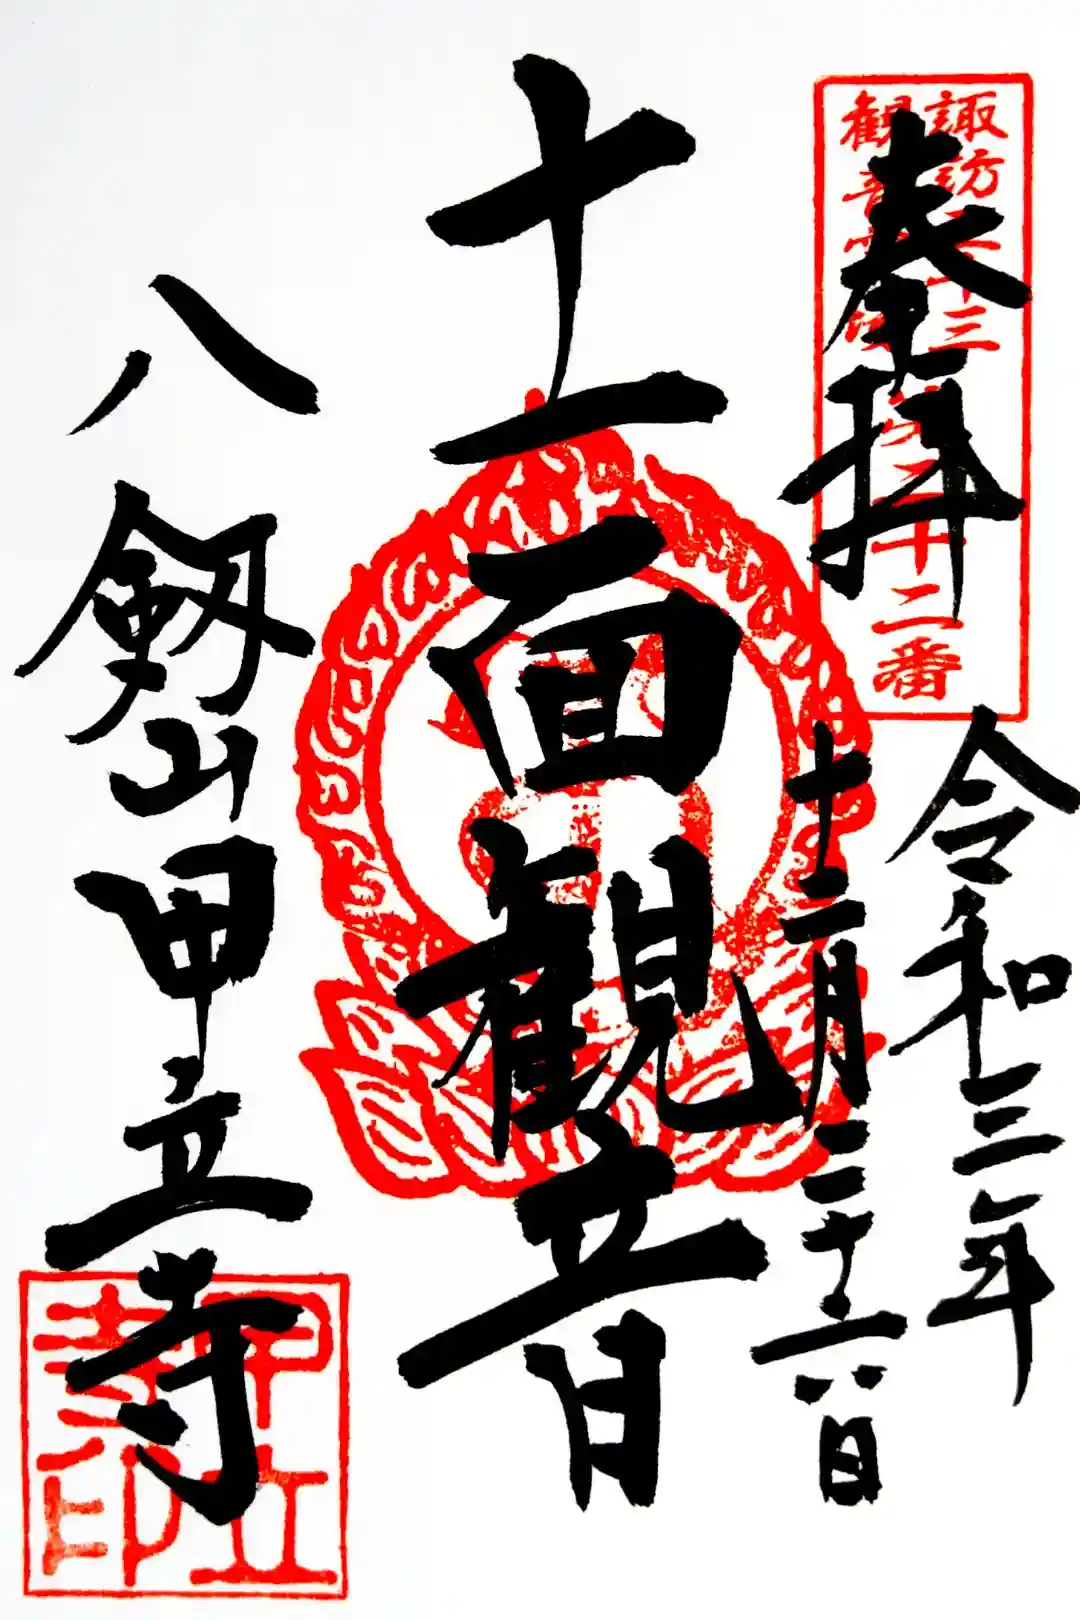 奉拝
諏訪三十三
観音霊場
二十二番
令和三年
十二月二十六日
十一面観音
八剱山甲立寺
甲立
寺印